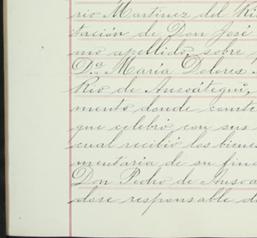 rio Martinez del Ri
tación de Don José
mo apellido, sobre
D.ª María Dolores
Rio de Ansoátegui,
mento donde conste
que celebró con sus
cual recibió los biene
mentaria de su fina
Don Pedro de Ansoa
dose responsable d